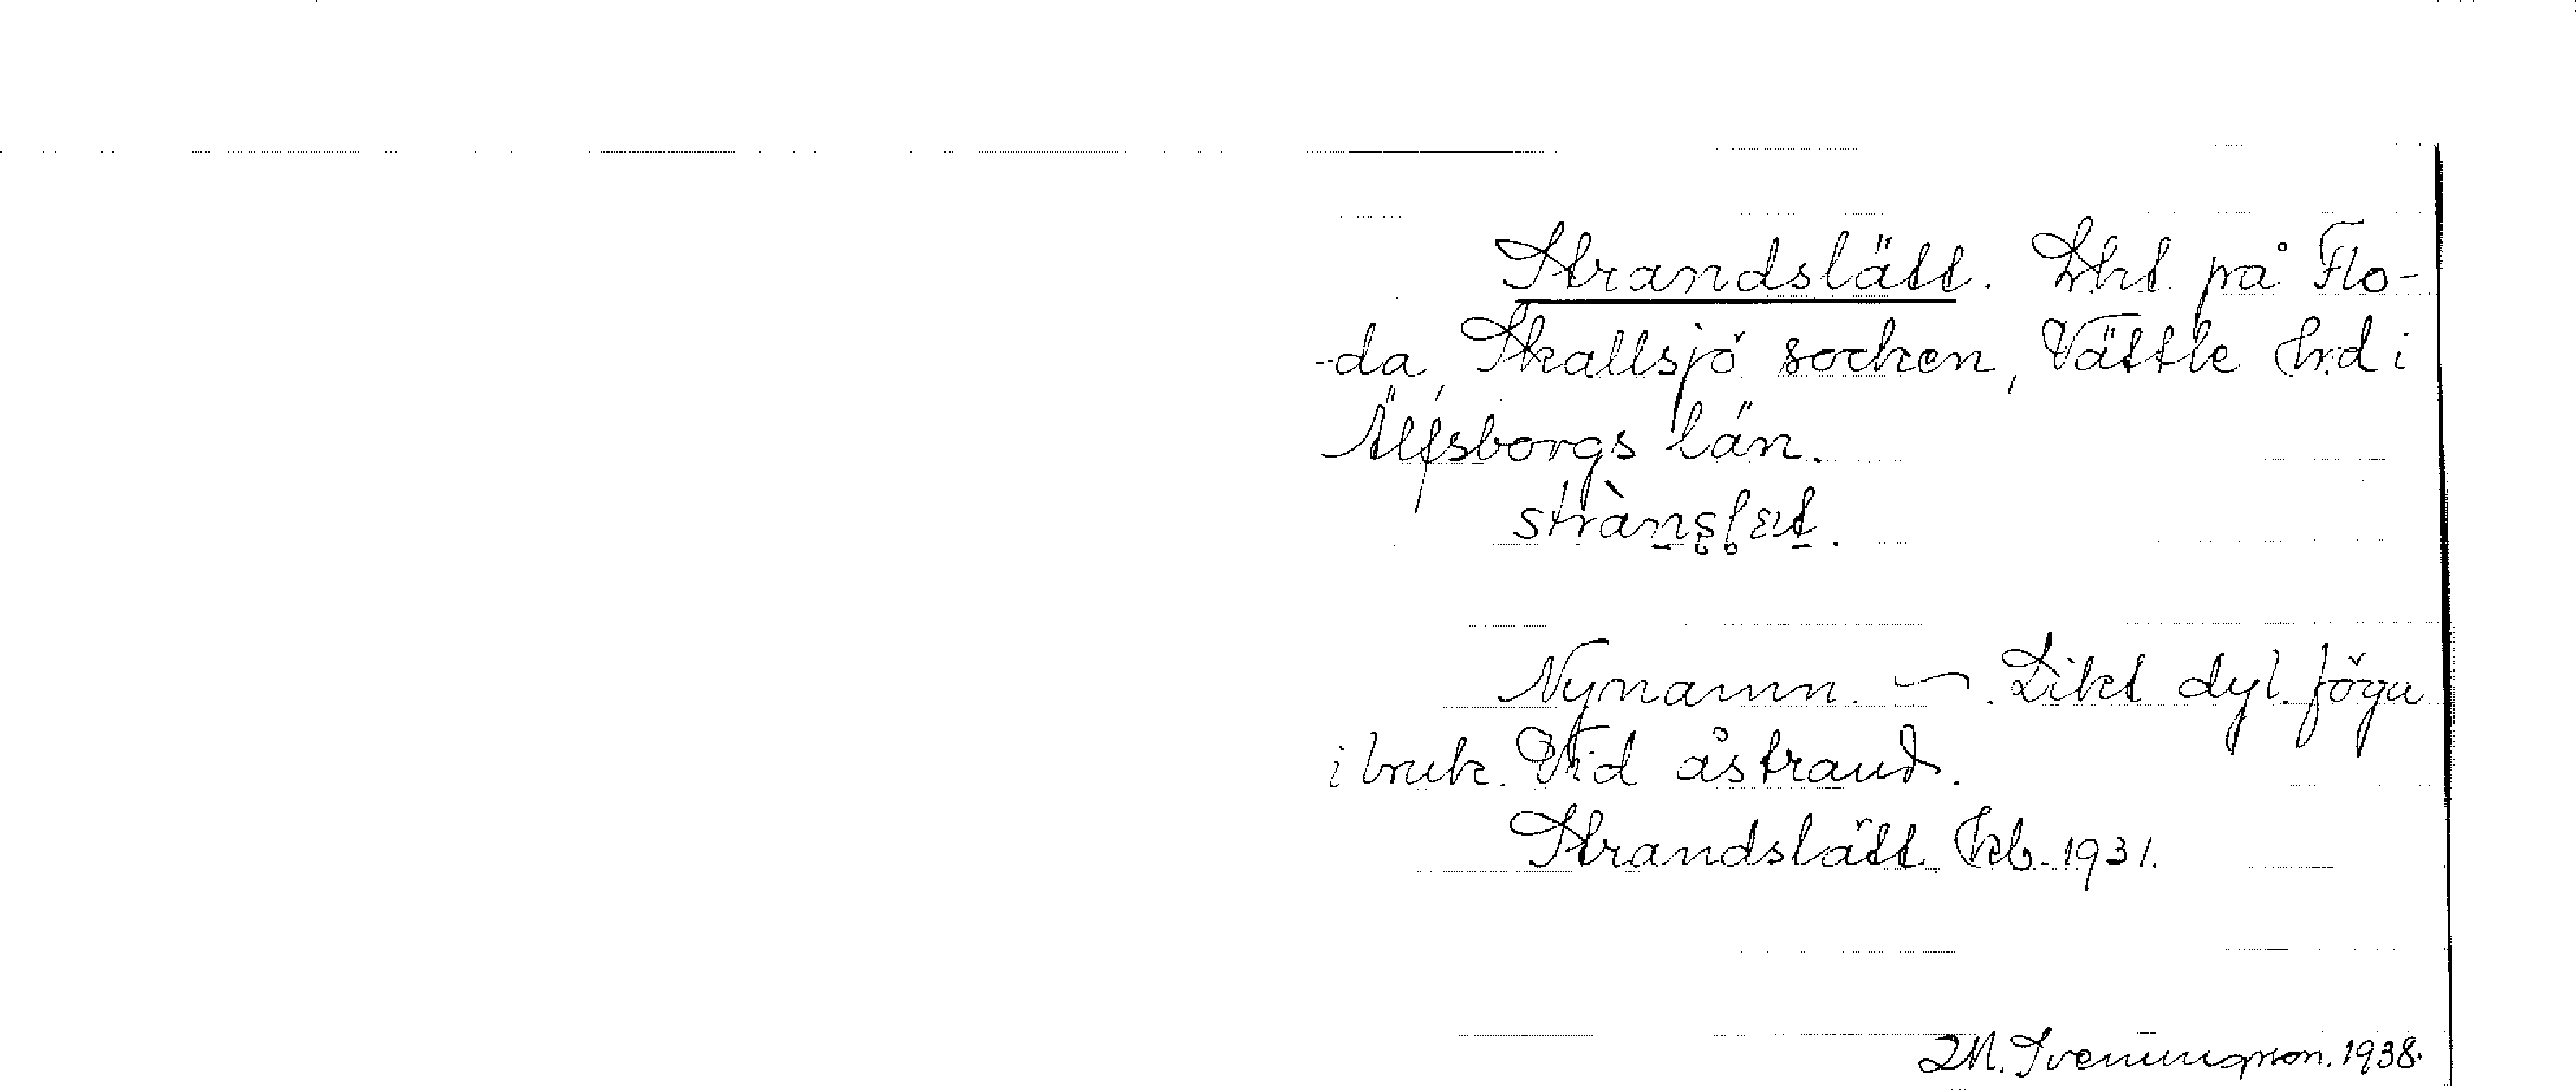 Strandslätt. Lht. på Flo-
-da, Skallsjö socken, Vättle hrd i
Älfsborgs län.
strànslæt.
Nynamn. Likt dyl. föga
i bruk. Vid åstrand.
Strandslätt Kb. 1931.
M. Svenungson. 1938.